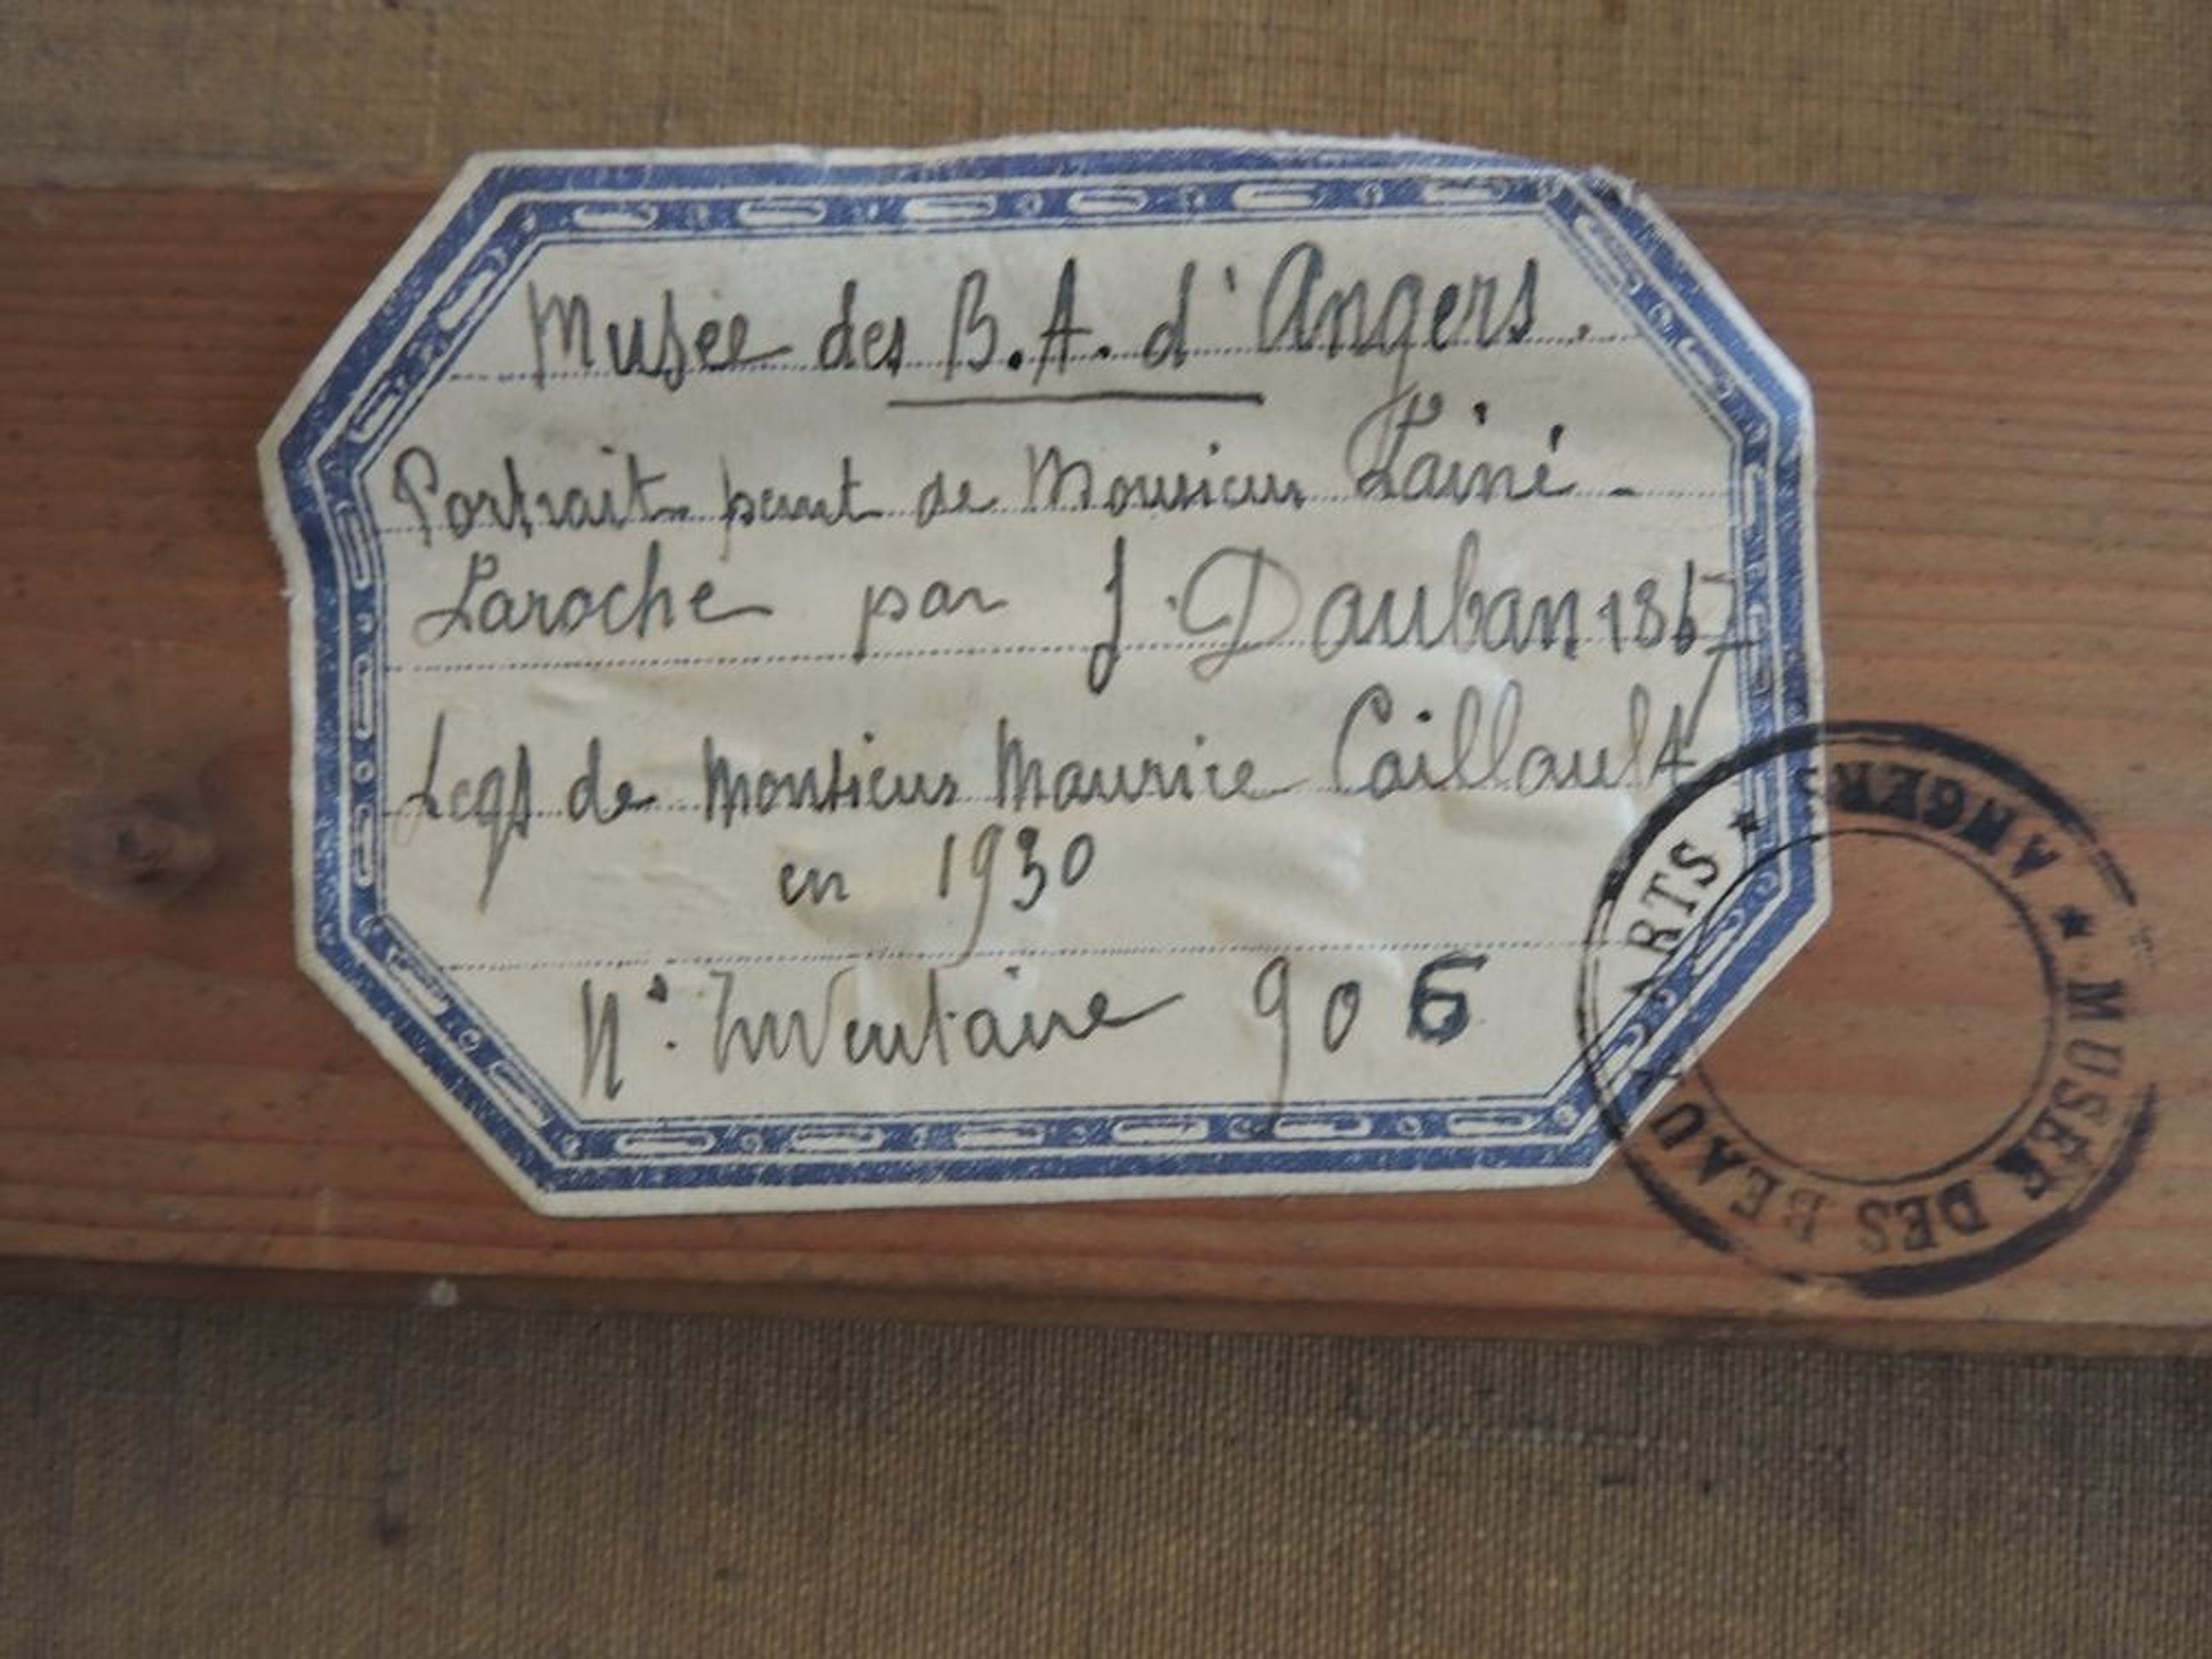 Musée des B.A. d'Angers.
Portrait peint de Monsieur Lainé-
Laroche par J. Dauban 1867
Legs de Monsieur Maurice Caillault
en 1930
N° Inventaire 906
* MUSÉE DES BEAUX ARTS * ANGERS